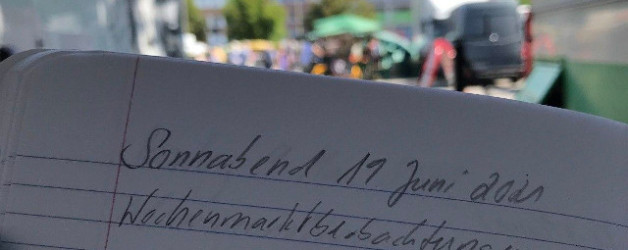 Sonnabend 19 Juni 2021
Wochenmarktbeobachtungen